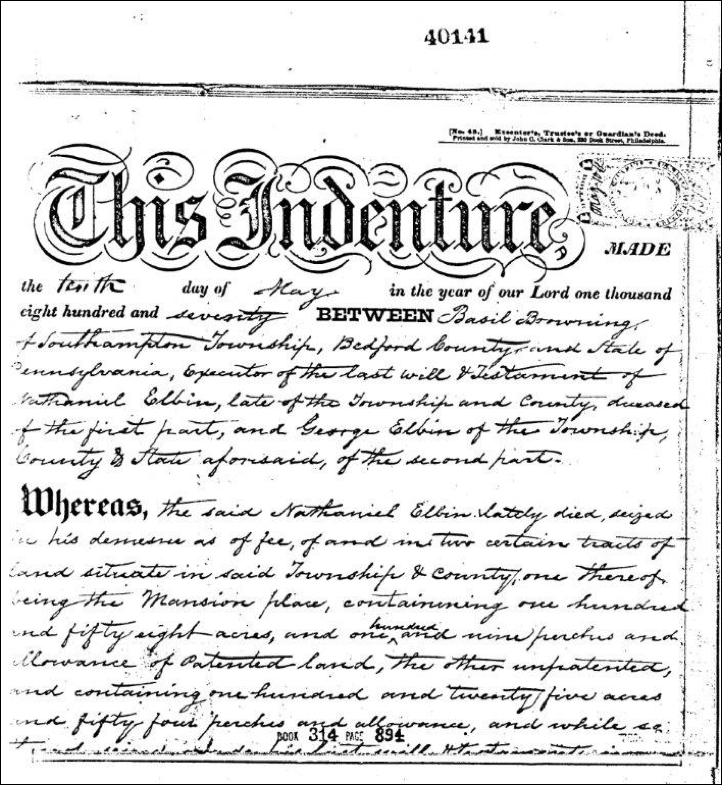 40141
[No. 48.] Executor's, Trustee's or Guardian's Deed.
Printed and sold by John C. Clark & Son, 230 Dock Street, Philadelphia.
This Indenture,
MADE
the tenth day of May in the year of our Lord one thousand
eight hundred and seventy BETWEEN Basil Browning,
of Southampton Township, Bedford County, and State of
Pennsylvania, Executor of the last will & Testament of
Nathaniel Elbin, late of the Township and County, deceased
of the first part, and George Elbin of the Township,
County & State aforisaid, of the second part.
Whereas, the said Nathaniel Elbin lately died, seized
in his demesne as of fee, of and in two certain traits of
land situate in said Township & County, one thereof
being the Mansion place, containining one hundred
and fifty eight acres, and one hundred and nine perches and
allowance of Patented land, the other unpatented,
and containing one hundred and twenty five acres
and fifty four perches and allowance, and while so
BOOK 314 PAGE 894
his last will &